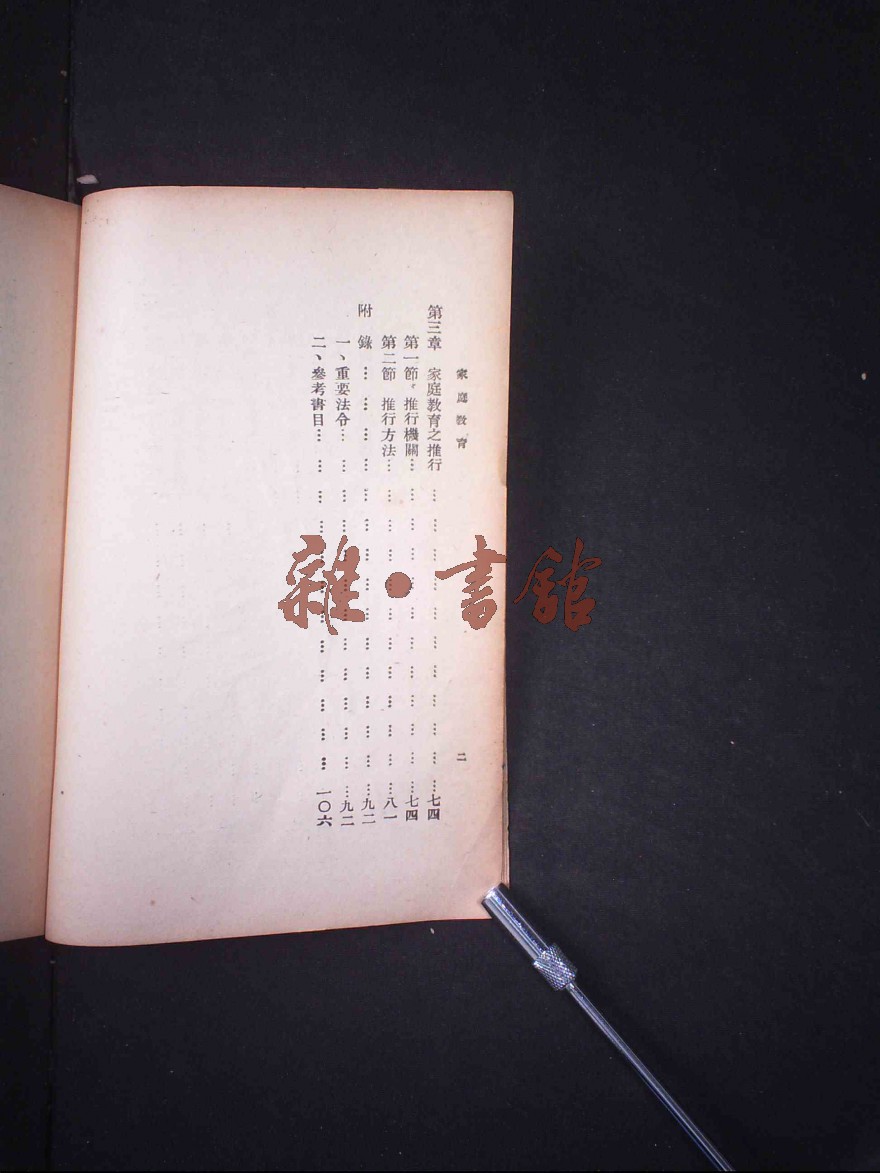 家庭教育
二
第三章 家庭教育之推行………………………………七四
第一節 推行機關………………………………七四
第二節 推行方法………………………………八一
附 錄………………………………九二
一、重要法令………………………………九二
二、參考書目………………………………一〇六
雜·書館